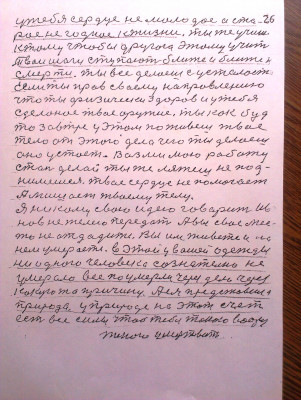 у тебя сердце не молодое и ста- 26
рое не годное к жизни. ты не учиш
к тому чтобы другого этому учить
Твои шаги ступают ближе и ближе к
смерти. ты все делаеш с усталости
если ты прав своему направлению
что ты физически здоров и у тебя
сделаное твае оружие, ты как буд
то завтре у этом поживеш твае
тело от этого дела чего ты делаеш
оно устает. Возми мою работу
стан делай ты не лятеш не под-
нимешся. твае сердце не помогает
А мишает твоему телу.
Я никому свою идею говорит Ив-
нов не гению передать А вы свае мес-
то не отдадите. Вы им живете и на
нем умерасте. в этой у вашей одежде
ни одного человека сознательно не
умерало все поумерли через дело через
какую то причину. А ет представники
природа. у природе на этот счет
ест все силы чтоб тебя такого
такого